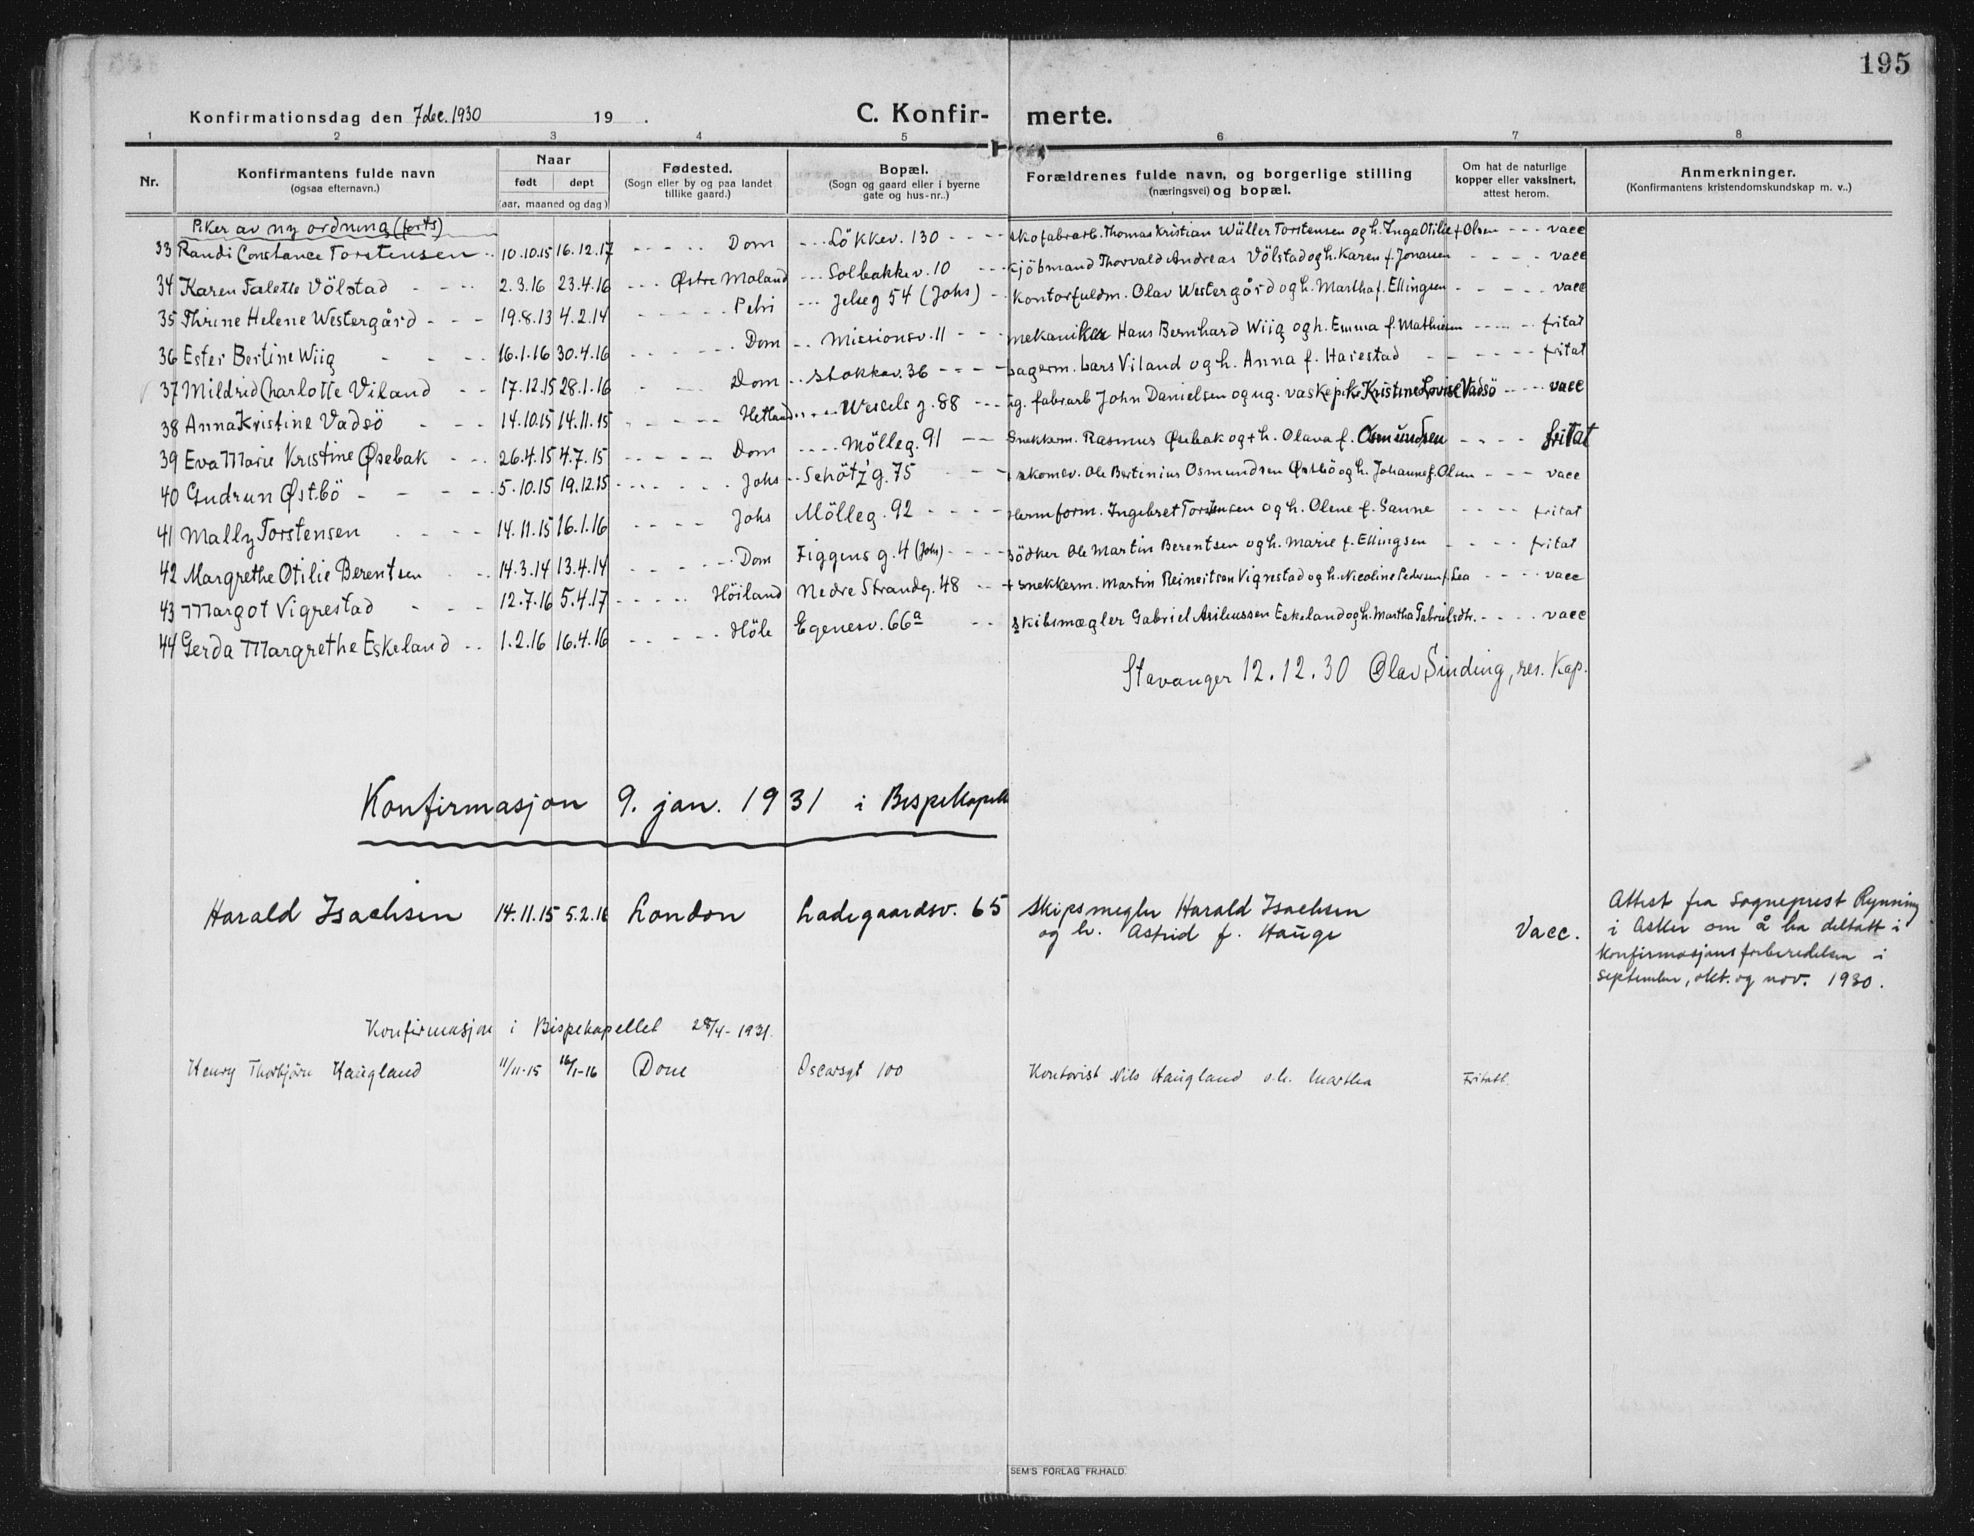 195
Konfirmationsdag den 7 dec. 1930 19 . C. Konfir- merte.
1 2 3 4 5 6 7 8
Nr. Konfirmantens fulde navn (ogsaa efternavn.) Naar født døpt (aar, maaned og dag) Fødested. (Sogn eller by og paa landet tillike gaard.) Bopæl. (Sogn og gaard eller i byerne gate og hus-nr..) Forældrenes fulde navn, og borgerlige stilling (næringsvei) og bopæl. Om hat de naturlige kopper eller vaksinert, attest herom. Anmerkninger. (Konfirmantens kristendomskundskap m. v..)
Piker av ny ordning (forts)
33 Randi Constance Torstensen 10.10.15 16.12.17 Dom Lökkev. 130 skofabrarb. Thomas Kristian Wüller Torstensen og h. Inga Otilie f Olsen vacc
34 Karen Talette Völstad 2.3.16 23.4.16 Østre Moland Solbakkev. 10 kjöbmand Thorvald Andreas Völstad og h. Karen f. Jonassen vacc
35 Thrine Helene Westergård 19.8.13 4.2.14 Petri Jelseg 54 (Johs) kontorfuldm. Olav Westergård og h. Martha f. Ellingsen vacc
36 Ester Bertine Wiig 16.1.16 30.4.16 Dom Missionsv. 11 mekaniker Hans Bernhard Wiig og h. Emma f. Mathiesen fritat
37 Mildred Charlotte Viland 17.12.15 28.1.16 Dom Stokkav. 36 Lagerm. Lars Viland og h. Anna f. Harestad fritat
38 Anna Kristine Vadsö 14.10.15 14.11.15 Hetland Wesselsg. 88 ug. fabrarb John Danielsen og ug. vaskepike Kristine Lovise Vadsö vacc
39 Eva Marie Kristine Øsebak 26.4.15 4.7.15 Dom Mölleg. 91 Snekkerm. Rasmus Øsebak og + h. Olava f. Osmundsen fritat
40 Gudrun Østbö 5.10.15 19.12.15 Johs Schötz'g. 75 + skomkv. Ole Bertinius Osmundsen Østbö og h. Johanne f. Olsen vacc
41 Mally Torstensen 14.11.15 16.1.16 Johs Mölleg. 92 Hermform. Ingebret Torstensen og h. Olene f. Sanne fritat
42 Margrethe Otilie Berentsen 14.3.14 13.4.14 Dom Figgens g. 4 (Johs) Bödker Ole Martin Berentsen og h. Marie f. Ellingsen fritat
43 Margot Vigrestad 12.7.16 5.4.17 Höiland Nedre Strandg. 48 + snekkerm. Martin Reinertsen Vigrestad og h. Nicoline Pedersen f. Lea vacc
44 Gerda Margrethe Eskeland 1.2.16 16.4.16 Höle Egenesv. 66a skibsmægler Gabriel Asluessen Eskeland og h. Martha Gabrielsdtr. vacc
Stavanger 12.12.30 Olav Sinding, res. Kap.
Konfirmasjon 9. jan. 1931 i Bispekapell
Harald Isachsen 14.11.15 5.2.16 London Ladegaardsv. 65 Skipsmegler Harald Isachsen
og h. Astrid f. Hauge Vacc.
Attest fra Sogneprest Rynning
i Asker om å ha deltatt i
konfirmasjonsforberedelsen i
september, okt. og nov. 1930.
Konfirmasjon i Bispekapellet 28/4- 1931.
Henry Thorbjörn Haugland 11/11-15 16/1-16 Dom Oscarsgt 100 Kontorist Nils Haugland o.h. Martha Fritatt.
SEM'S FORLAG FR.HALD.